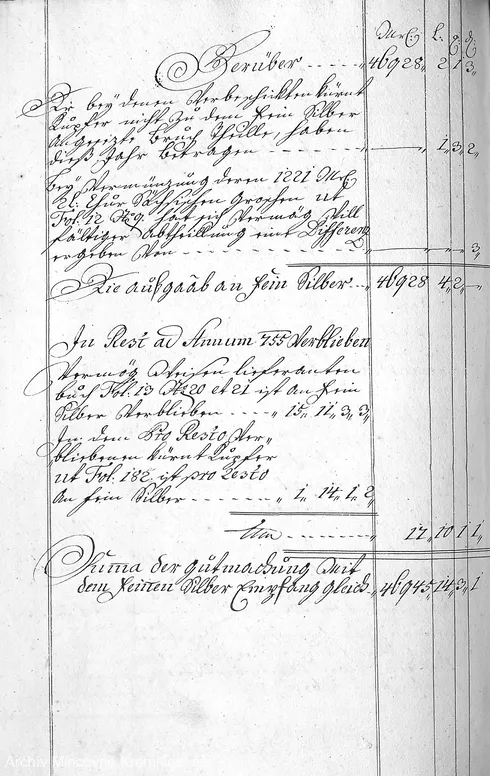 Mrc: L. q d
Herüber - - - - „ 46928„ 2„ 1„ 3„
Die bey denen Verbeschickten Kürnt
Kupfer nicht zu dem fein Silber
Angesezte Bruch Theille, haben
dieß Jahr betragen - - - - „ — „ 1„ 3„ 2„
Bey Vermünzung deren 1221 Mrc
2 L. Chur Sächsischen Groschen ut
Fol. 12 No 9, hat sich Vermög
fältiger Abtheillung eine Differenz
ergeben Von - - - - „ — „ — „ — „ 3„
Die ausgaab an fein Silber - - „ 46928 4„ 2„ —
In Rest ad Annum 755 Verblieben
Vermög Speisen lieferanten
buch Fol: 13 No 20 et 21 ist an fein
Silber Verblieben - - - - „ 15„ 11„ 3„ 3„
In dem pro Resto Ver-
bliebenen Kürnt Kupfer
ut Fol. 182 ist pro Resto
An fein Silber - - - - „ 1„ 14„ 1„ 2„
- - - - „ 17„ 10 1„ 1„
Suma der gutmachung Mit
dem feinen Silber Empfang gleich „ 46945„ 14„ 3„ 1